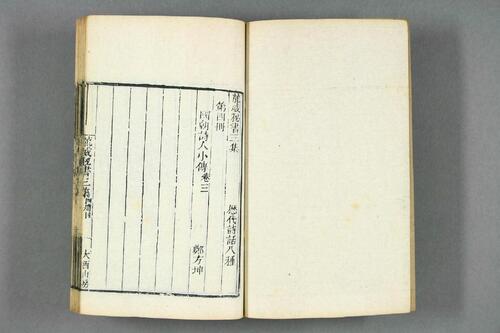 龍威秘書三集 歷代詩話八種
第四冊
國朝詩人小傳卷三 鄭方坤
龍威秘書三集 大酉山房